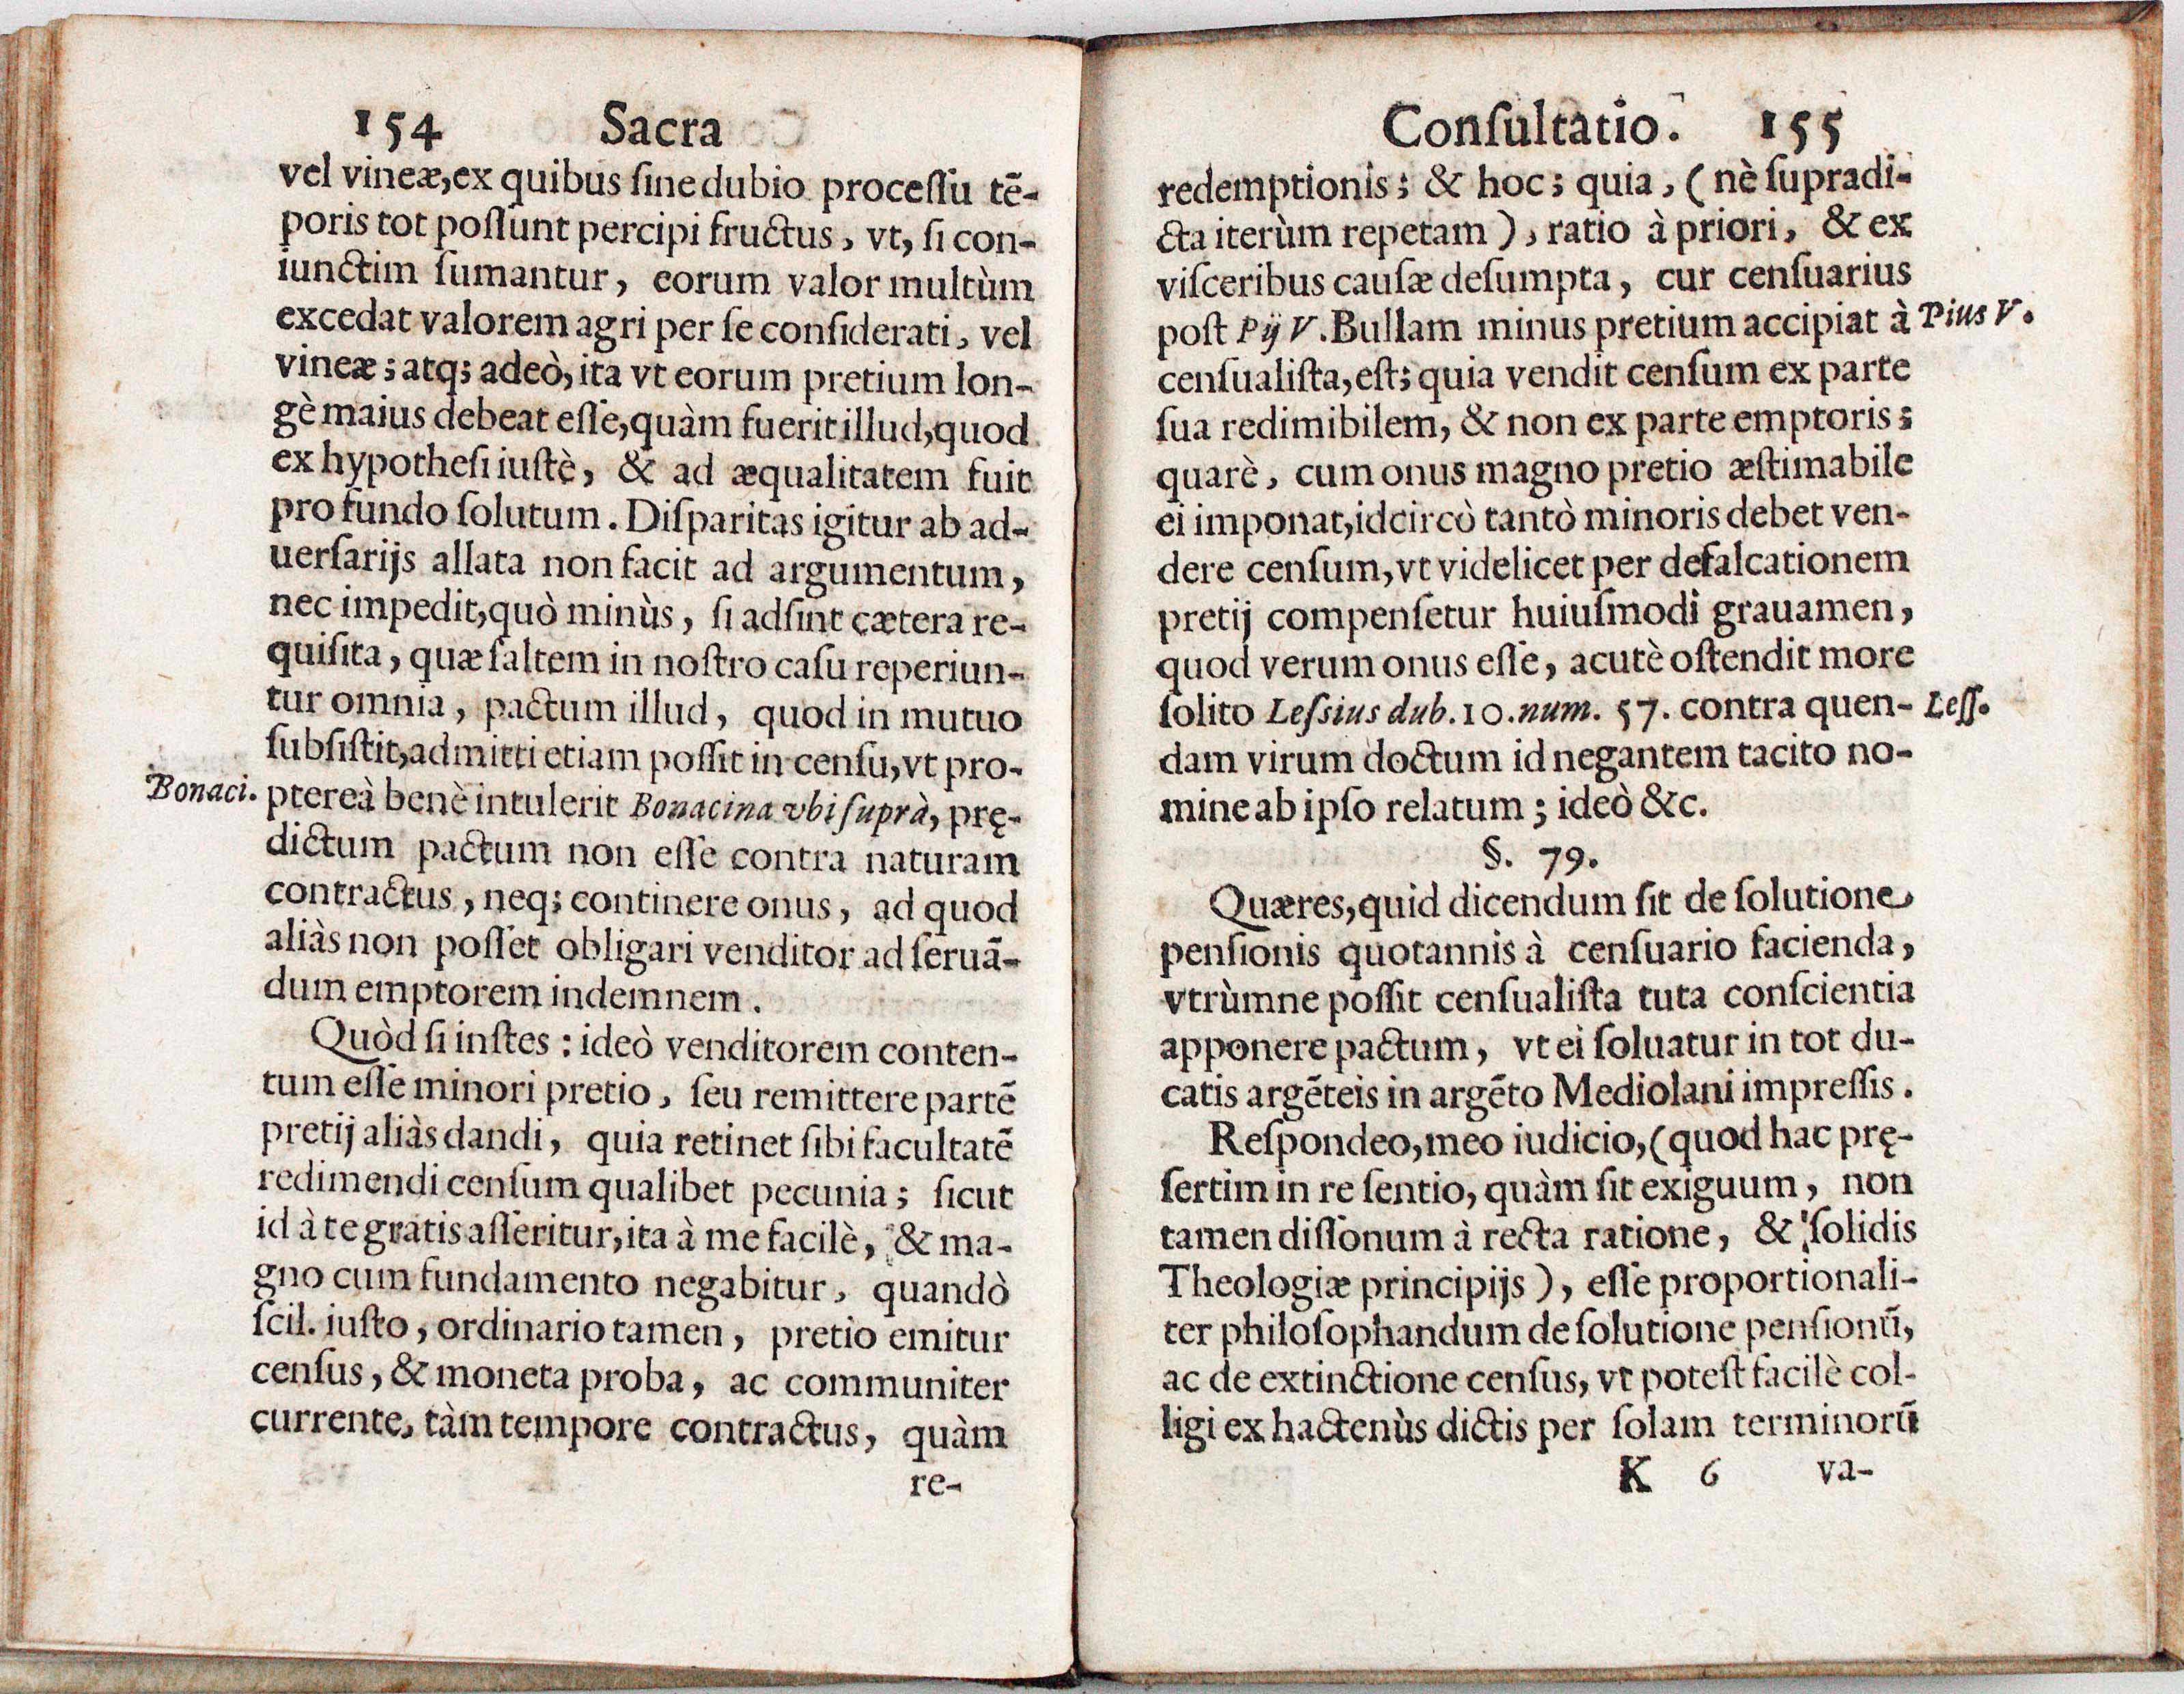 154 Sacra
vel vineæ, ex quibus ſine dubio proceſſu tē-
poris tot poſſunt percipi fructus, vt, ſi con-
iunctim ſumantur, eorum valor multùm
excedat valorem agri per ſe conſiderati, vel
vineæ; atq; adeò, ita vt eorum pretium lon-
gè maius debeat eſſe, quàm fuerit illud, quod
ex hypotheſi iuſtè, & ad æqualitatem fuit
pro fundo ſolutum. Diſparitas igitur ab ad-
uerſarijs allata non facit ad argumentum,
nec impedit, quò minùs, ſi adſint cætera re-
quiſita, quæ ſaltem in noſtro caſu reperiun-
tur omnia, pactum illud, quod in mutuo
ſubſiſtit, admitti etiam poſſit in cenſu, vt pro-
Bonaci. ptereà benè intulerit Bonacina vbi ſuprà, prę-
dictum pactum non eſſe contra naturam
contractus, neq; continere onus, ad quod
aliàs non poſſet obligari venditor ad ſeruā-
dum emptorem indemnem.
Quòd ſi inſtes: ideò venditorem conten-
tum eſſe minori pretio, ſeu remittere partē
pretij aliàs dandi, quia retinet ſibi facultatē
redimendi cenſum qualibet pecunia; ſicut
id à te gratis aſſeritur, ita à me facilè, & ma-
gno cum fundamento negabitur, quandò
ſcil. iuſto, ordinario tamen, pretio emitur
cenſus, & moneta proba, ac communiter
currente, tàm tempore contractus, quàm
re-
Conſultatio. 155
redemptionis; & hoc; quia, (nè ſupradi-
cta iterùm repetam), ratio à priori, & ex
viſceribus cauſæ deſumpta, cur cenſuarius
poſt Pij V. Bullam minus pretium accipiat à Pius V.
cenſualiſta, eſt; quia vendit cenſum ex parte
ſua redimibilem, & non ex parte emptoris;
quarè, cum onus magno pretio æſtimabile
ei imponat, idcircò tantò minoris debet ven-
dere cenſum, vt videlicet per defalcationem
pretij compenſetur huiuſmodi grauamen,
quod verum onus eſſe, acutè oſtendit more
ſolito Leſsius dub. 10. num. 57. contra quen- Leſſ.
dam virum doctum id negantem tacito no-
mine ab ipſo relatum; ideò &c.
§. 79.
Quæres, quid dicendum ſit de ſolutione
penſionis quotannis à cenſuario facienda,
vtrùmne poſſit cenſualiſta tuta conſcientia
apponere pactum, vt ei ſoluatur in tot du-
catis argēteis in argēto Mediolani impreſſis.
Reſpondeo, meo iudicio, (quod hac prę-
ſertim in re ſentio, quàm ſit exiguum, non
tamen diſſonum à recta ratione, & ſolidis
Theologiæ principijs), eſſe proportionali-
ter philoſophandum de ſolutione penſionū,
ac de extinctione cenſus, vt poteſt facilè col-
ligi ex hactenùs dictis per ſolam terminorū
K 6 va-